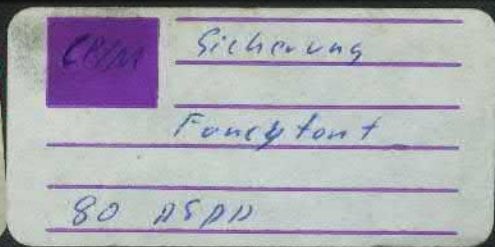 CP/M
Sicherung
Fancyfont
80 DSDD